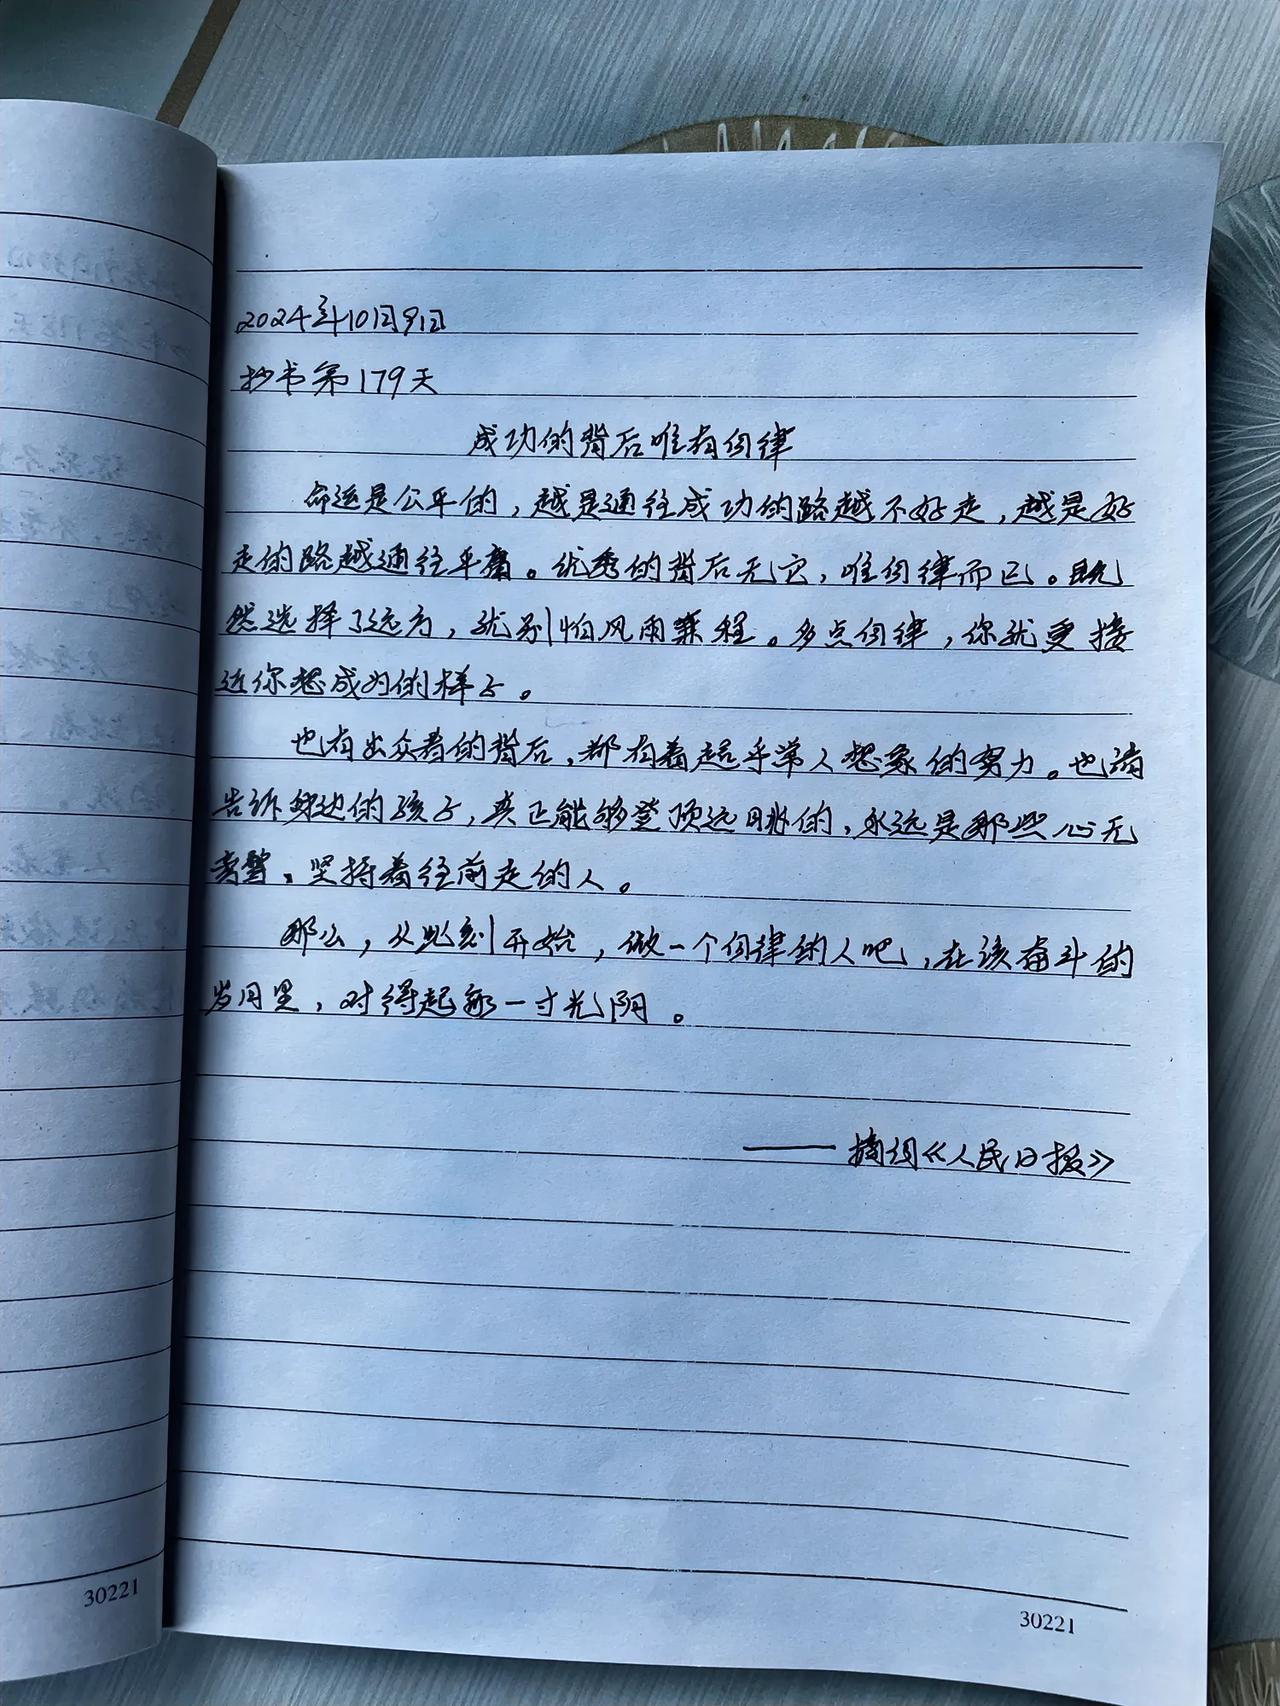 2024年10月9日
抄书第179天
成功的背后唯有自律
命运是公平的，越是通往成功的路越不好走，越是好
走的路越通往平庸。优秀的背后无它，唯自律而已。既
然选择了远方，就别怕风雨兼程。多点自律，你就更接
近你想成为的样子。
也有出众者的背后，都有着超乎常人想象的努力。也请
告诉身边的孩子，真正能够登顶远眺的，永远是那些心无
旁骛、坚持着往前走的人。
那么，从此刻开始，做一个自律的人吧，在该奋斗的
岁月里，对得起每一寸光阴。
——摘自《人民日报》
30221
30221